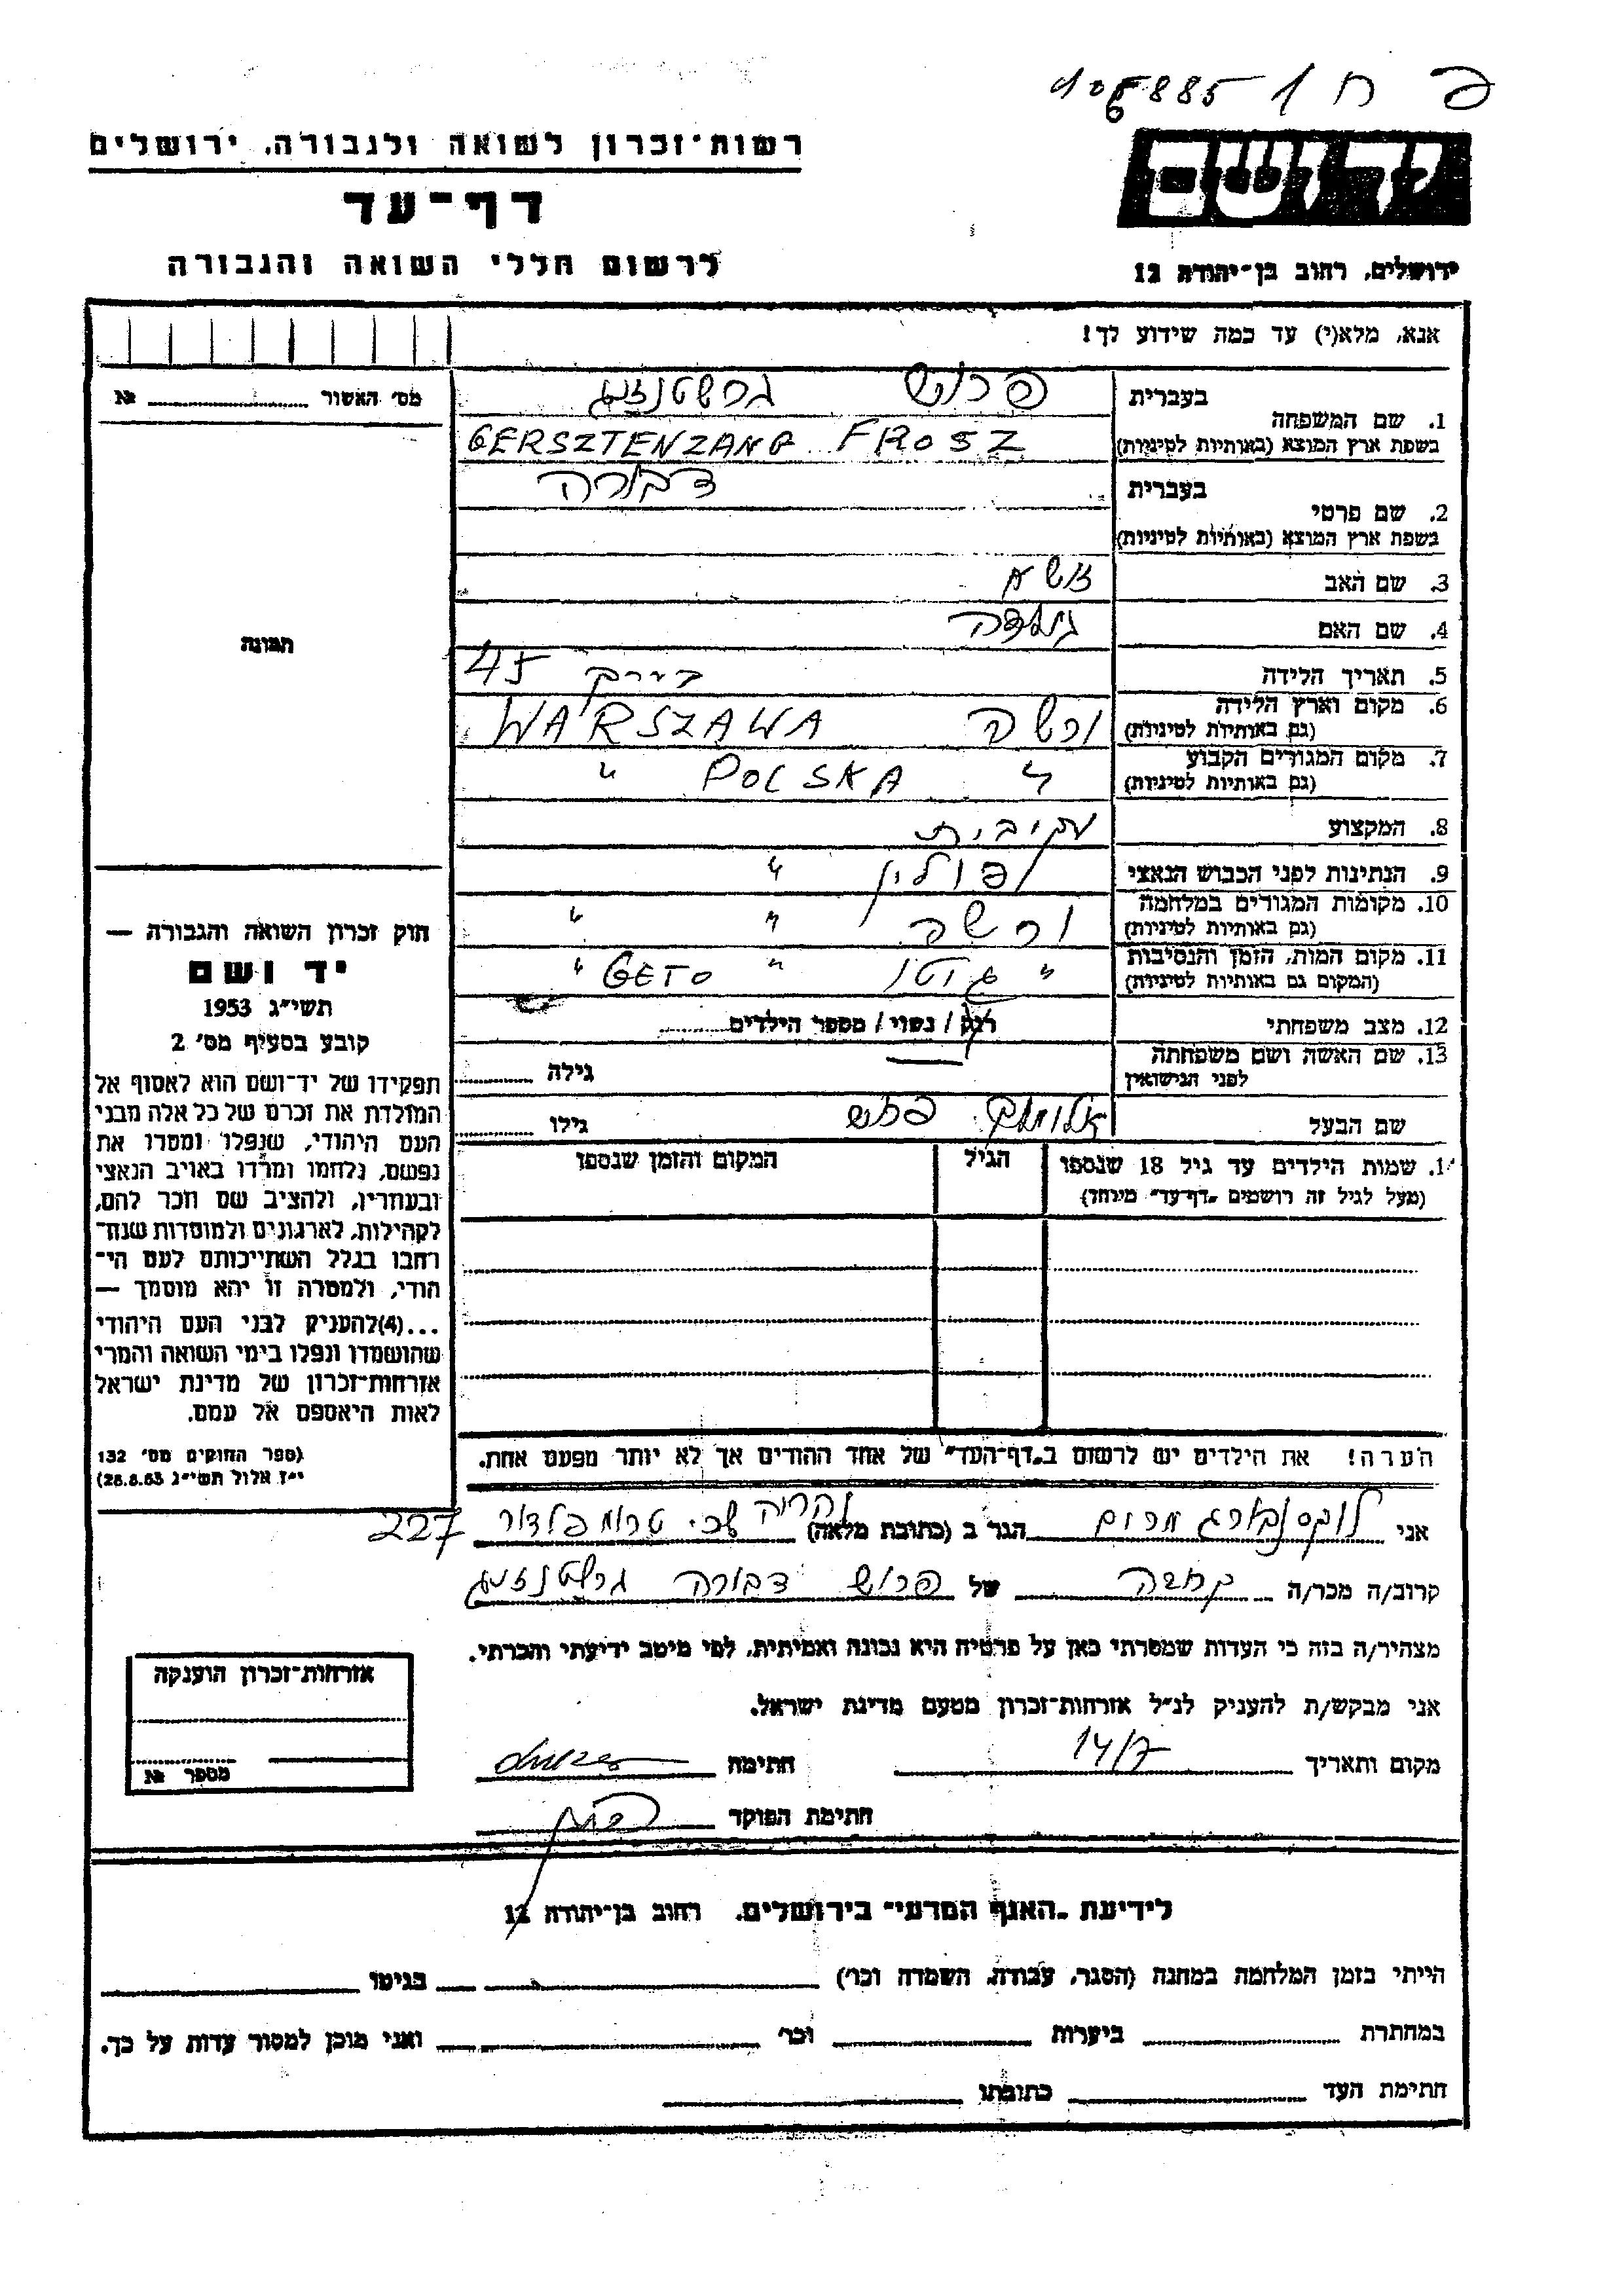 פ ח 1
יד ושם
ירושלים, רחוב בן־יהודה 12
רשות־זכרון לשואה ולגבורה, ירושלים
דף־עד
לרשום חללי השואה והגבורה
אנא, מלא(י) עד כמה שידוע לך!
מס׳ האשור № 
תמונה
1. שם המשפחה
בעברית פרוש גרשטנזנג
בשפת ארץ המוצא (באותיות לטיניות) GERSZTENZANG FROSZ
2. שם פרטי
בעברית דבורה
בשפת ארץ המוצא (באותיות לטיניות)
3. שם האב
4. שם האם
5. תאריך הלידה 45
6. מקום וארץ הלידה ורשה WARSZAWA
(גם באותיות לטיניות)
7. מקום המגורים הקבוע " POLSKA "
(גם באותיות לטיניות)
8. המקצוע
9. הנתינות לפני הכבוש הנאצי פולין "
10. מקומות המגורים במלחמה ורשה " "
(גם באותיות לטיניות)
11. מקום המות, הזמן והנסיבות " גיטו " GETO "
(המקום גם באותיות לטיניות)
12. מצב משפחתי רוק / נשוי / מספר הילדים
13. שם האשה ושם משפחתה
לפני הנישואין גילה
שם הבעל פרוש גילו
1. שמות הילדים עד גיל 18 שנספו הגיל המקום והזמן שנספו
(מעל לגיל זה רושמים „דף־עד״ מיוחד)
הערה! את הילדים יש לרשום ב„דף־העד״ של אחד ההורים אך לא יותר מפעם אחת.
חוק זכרון השואה והגבורה —
יד ושם
תשי״ג 1953
קובע בסעיף מס׳ 2
תפקידו של יד־ושם הוא לאסוף אל
המולדת את זכרם של כל אלה מבני
העם היהודי, שנפלו ומסרו את
נפשם, נלחמו ומרדו באויב הנאצי
ובעוזריו, ולהציב שם וזכר להם,
לקהילות, לארגונים ולמוסדות שנח־
רבו בגלל השתייכותם לעם הי־
הודי, ולמטרה זו יהא מוסמך —
...(4)להעניק לבני העם היהודי
שהושמדו ונפלו בימי השואה והמרי
אזרחות־זכרון של מדינת ישראל
לאות היאספם אל עמם.
(ספר החוקים מס׳ 132
י״ז אלול תשי״ג 28.8.53)
אני לוקסנבורג מרום הגר ב (כתובת מלאה) נהריה שכ׳ טרומפלדור 227
קרוב/ה מכר/ה קרובה של פרוש דבורה גרשטנזנג
מצהיר/ה בזה כי העדות שמסרתי כאן על פרטיה היא נכונה ואמיתית, לפי מיטב ידיעתי והכרתי.
אני מבקש/ת להעניק לנ״ל אזרחות־זכרון מטעם מדינת ישראל.
מקום ותאריך 14/7 חתימה
חתימת הפוקד
אזרחות־זכרון הוענקה
מספר №
לידיעת „האגף המדעי״ בירושלים, רחוב בן־יהודה 12
הייתי בזמן המלחמה במחנה (הסגר, עבודה, השמדה וכו׳) בגיטו
במחתרת ביערות וכו׳ ואני מוכן למסור עדות על כך.
חתימת העד כתובתו